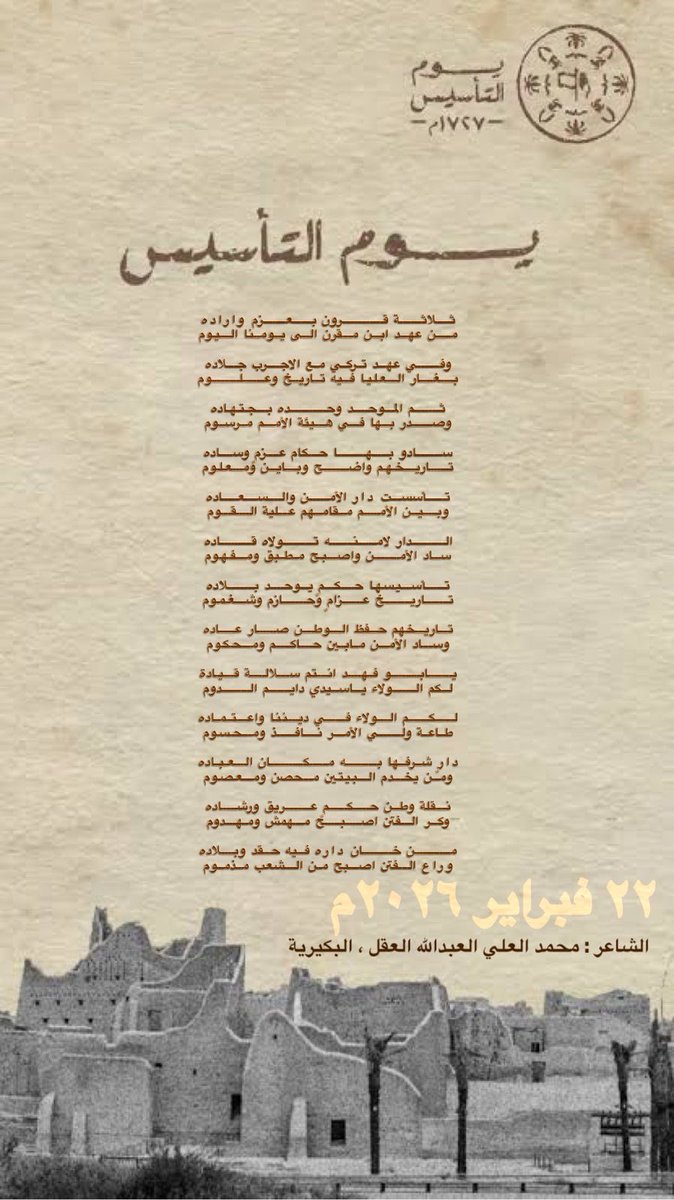 يوم
التأسيس
١٧٢٧م
يوم التأسيس
ثلاثة قرون بعزم واراده
من عهد ابن مقرن الى يومنا اليوم
وفي عهد تركي مع الاجرب جلاده
بغار العليا فيه تاريخ وعلوم
ثم الموحد وحده بجتهاده
وصدر بها في هيئة الأمم مرسوم
سادو بها حكام عزم وساده
تاريخهم واضح وباين ومعلوم
تأسست دار الأمن والسعاده
وبين الأمم مقامهم علية القوم
الدار لامنه تولاه قاده
ساد الأمن واصبح مطبق ومفهوم
تأسيسها حكم يوحد بلاده
تاريخ عزام وحازم وشغموم
تاريخهم حفظ الوطن صار عاده
وساد الأمن مابين حاكم ومحكوم
يابو فهد انتم سلالة قيادة
لكم الولاء ياسيدي دايم الدوم
لكم الولاء في ديننا واعتماده
طاعة ولي الأمر نافذ ومحسوم
دار شرفها به مكان العباده
ومن يخدم البيتين محصن ومعصوم
نقلة وطن حكم عريق ورشاده
وكر الفتن اصبح مهمش ومهدوم
من خان داره فيه حقد وبلاده
وراع الفتن اصبح من الشعب مذموم
٢٢ فبراير ٢٠٢٦م
الشاعر : محمد العلي العبدالله العقل ، البكيرية